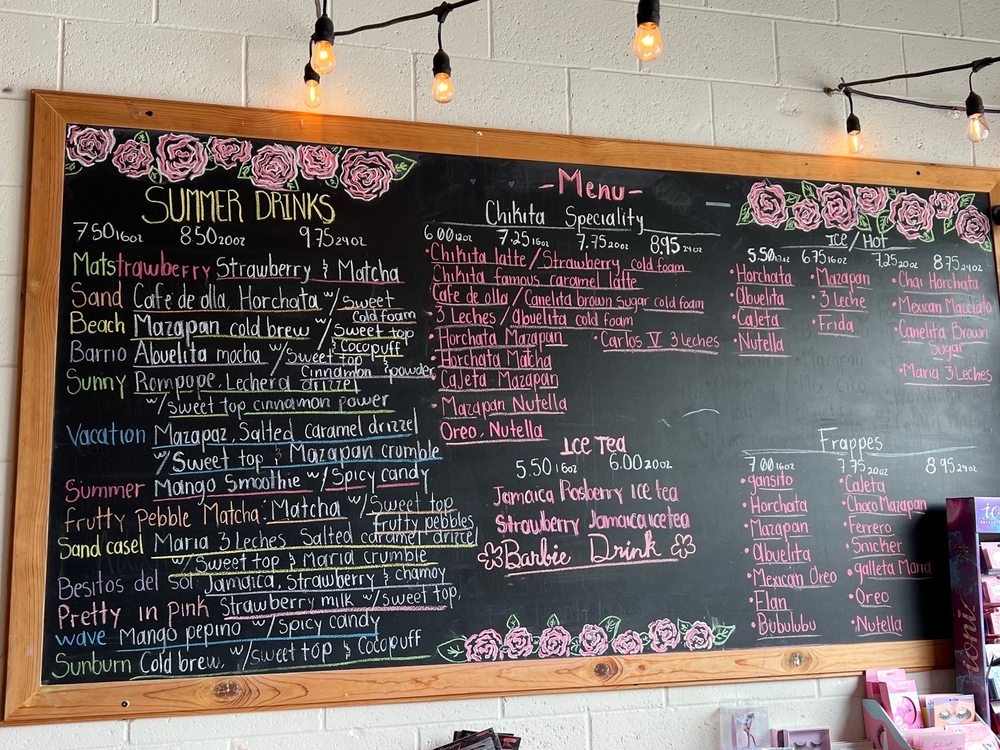 SUMMER DRINKS
7.50 16oz 8.50 20oz 9.75 24oz
Matstrawberry Strawberry & Matcha
Sand Cafe de olla, Horchata w/Sweet cold foam
Beach Mazapan cold brew w/Sweet top & Cocopuff
Barrio Abuelita mocha w/Sweet top Cinnamon & powder
Sunny Rompope, Lechera drizzel
w/sweet top cinnamon power
Vacation Mazapaz, Salted caramel drizzel
w/Sweet top & Mazapan crumble
Summer Mango Smoothie w/Spicy candy
Frutty Pebble Matcha: Matcha w/Sweet top
frutty pebbles
Sand casel Maria 3 Leches Salted caramel drizzel
w/Sweet top & Maria crumble
Besitos del sol Jamaica, Strawberry & chamoy
Pretty in pink Strawberry milk w/Sweet top,
wave Mango pepino w/Spicy candy
Sunburn Cold brew, w/sweet top & Cocopuff
-Menu-
Chikita Speciality
6.00 12oz 7.25 16oz 7.75 20oz 8.95 24oz
• Chikita latte/Strawberry cold foam
Chikita famous caramel latte
Cafe de olla/Canelita brown sugar cold foam
• 3 Leches/Abuelita cold foam
• Horchata Mazapan
• Carlos V 3 leches
• Horchata Matcha
• Cajeta Mazapan
• Mazapan Nutella
Oreo, Nutella
ICE TEA
5.50 16oz 6.00 20oz
Jamaica Rasberry ICE tea
Strawberry Jamaica ice tea
Barbie Drink
Ice/Hot
5.50 12oz 6.75 16oz 7.25 20oz 8.75 24oz
• Horchata
• Abuelita
• Cajeta
• Nutella
• Mazapan
• 3 leche
• Frida
• Chai Horchata
• Mexican Macciato
• Canelita Brown
Sugar
• Maria 3 Leches
Frappes
7.00 16oz 7.75 20oz 8.95 24oz
• gansito
• Horchata
• Mazapan
• Abuelita
• Mexican Oreo
• Flan
• Bubulubu
• Caleta
• Choco Mazapan
• Ferrero
• Snicker
• galleta Maria
• Oreo
• Nutella
toni